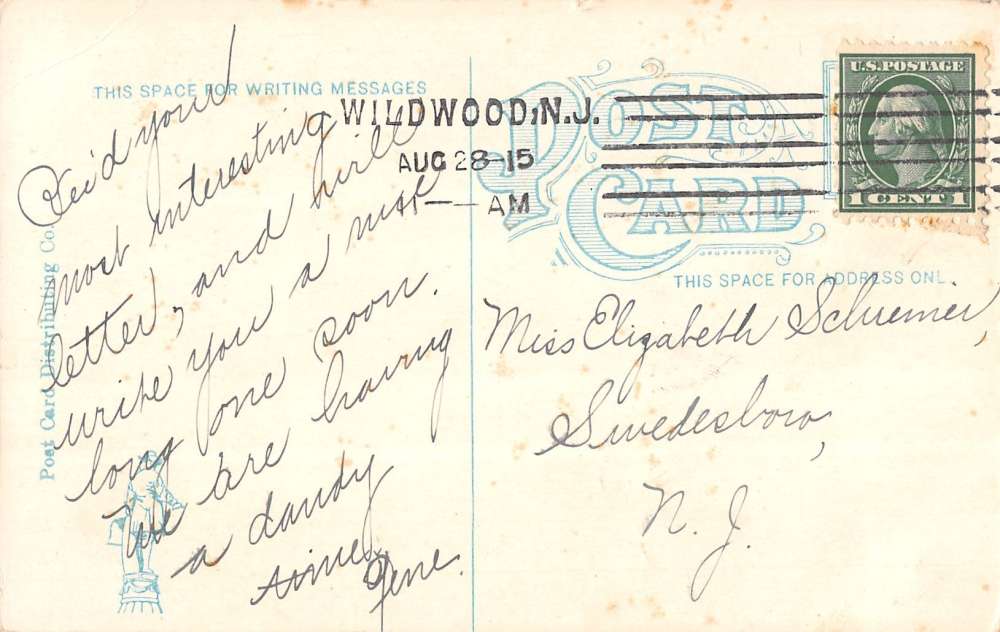 THIS SPACE FOR WRITING MESSAGES
Rec'd your
most interesting
letter, and will
write you a nice
long one soon.
We are having
a dandy
time.
Gene.
Post Card Distributing Co.
WILDWOOD, N.J.
AUG 28-15
AM
POST
CARD
U.S. POSTAGE
1 CENT 1
THIS SPACE FOR ADDRESS ONL.
Miss Elizabeth
Swedesboro,
N. J.